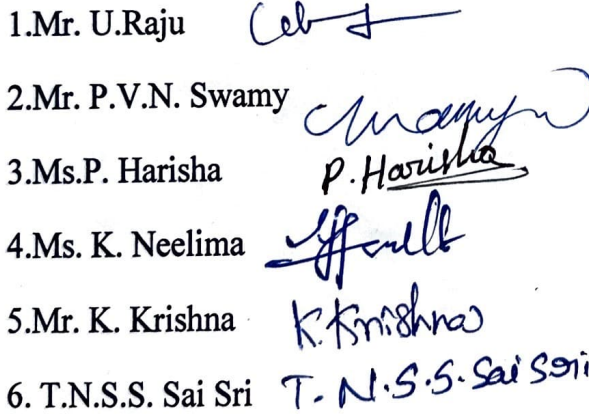 1.Mr. U.Raju
2.Mr. P.V.N. Swamy
3.Ms.P. Harisha P. Harisha
4.Ms. K. Neelima
5.Mr. K. Krishna K. Krishna
6. T.N.S.S. Sai Sri T. N.S.S. Sai Sri